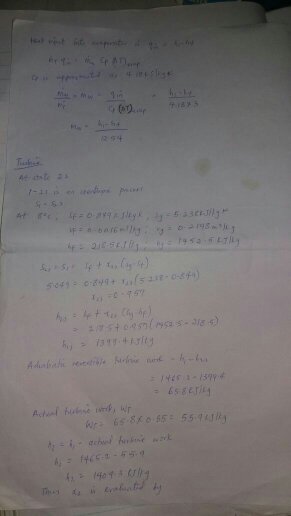 Heat input into evaporator is qin = h1-h4
mr qin = mw Cp (ΔT)evap
Cp is approximated as 4.18 kJ/kgK
mw/mr = Mw = qin/Cp (ΔT)evap = h1-h4/4.18×3
Mw = h1-h4/12.54
Turbine
At state 2s
1-2s is an isentropic process
S1 = S2s
At 8°C, Sf = 0.849 kJ/kgK, Sg = 5.238 kJ/kgK
Vf = 0.0016 m³/kg, Vg = 0.2198 m³/kg
hf = 218.5 kJ/kg, hg = 1452.5 kJ/kg
S2s = S1 = Sf + x2s (Sg-Sf)
5.049 = 0.849 + x2s (5.238-0.849)
x2s = 0.957
h2s = hf + x2s (hg-hf)
= 218.5 + 0.957 (1452.5-218.5)
h2s = 1399.4 kJ/kg
Adiabatic reversible turbine work = h1-h2s
= 1465.2-1399.4
= 65.8 kJ/kg
Actual turbine work, WT
WT = 65.8 × 0.85 = 55.9 kJ/kg
h2 = h1 - actual turbine work
h2 = 1465.2 - 55.9
h2 = 1409.3 kJ/kg
Thus x2 is evaluated by